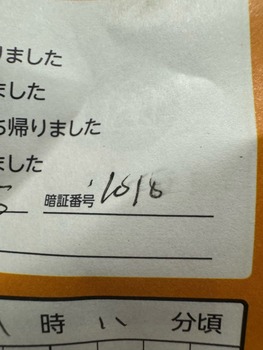 りました
ました
ち帰りました
ました
暗証番号 1818
時 分頃